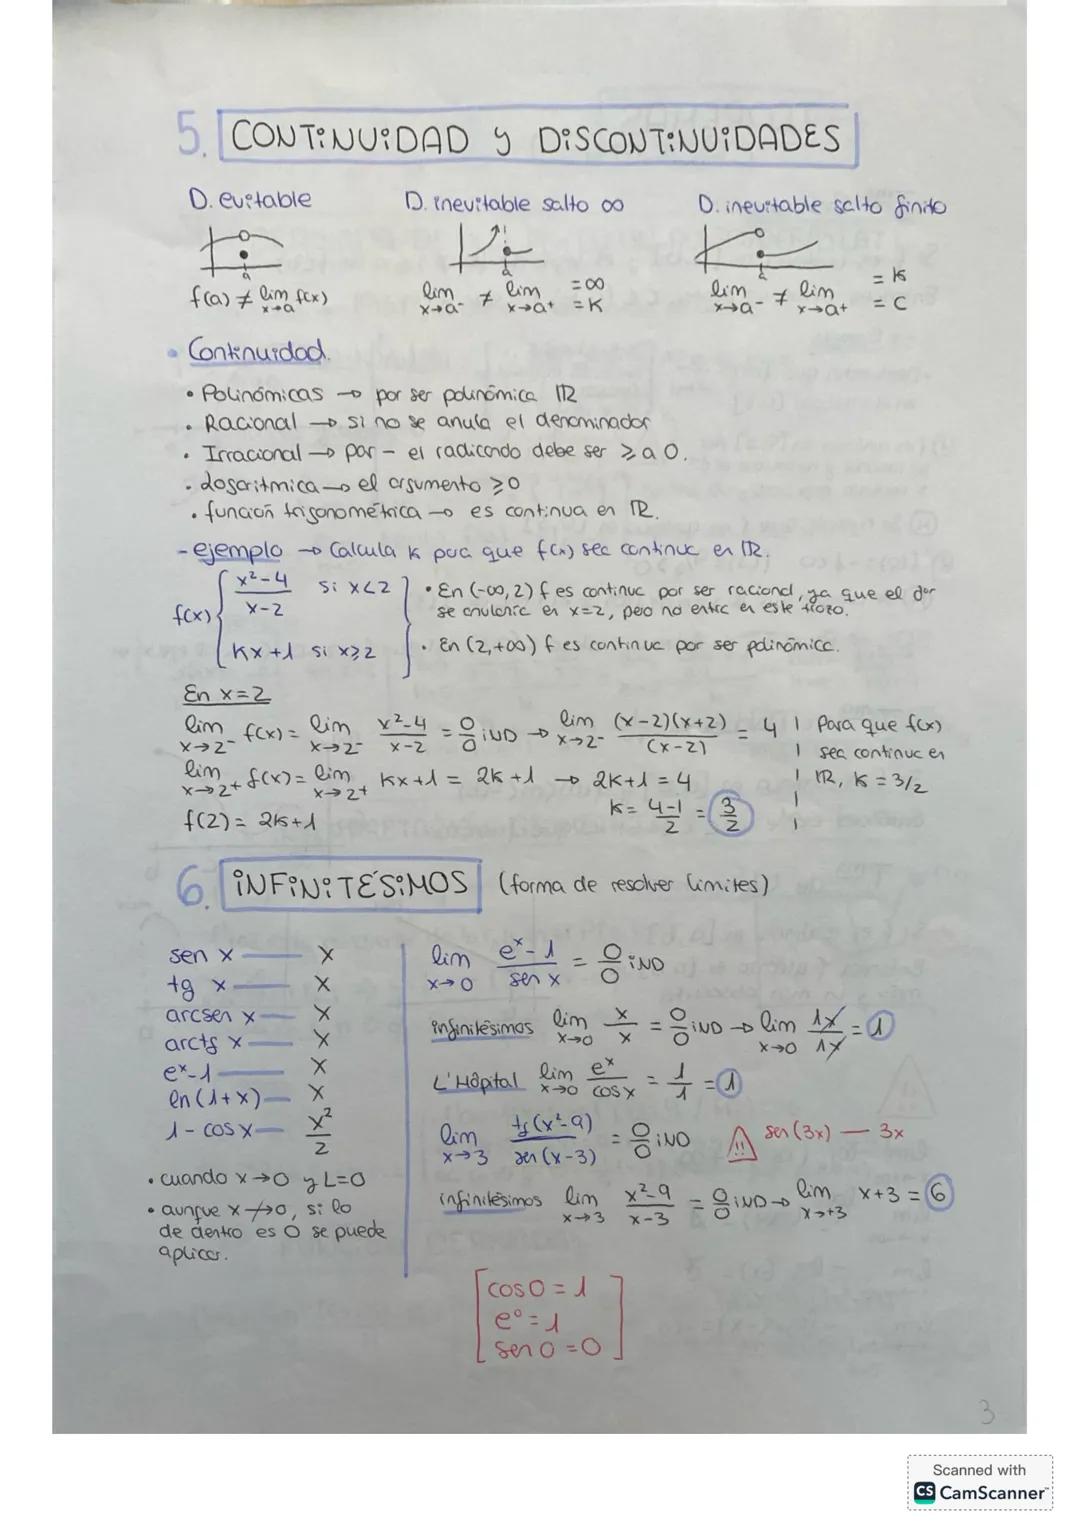 5. CONTINUIDAD y DISCONTINUIDADES
D. evitable D. inevitable salto ∞ D. inevitable salto finito
a a a
f(a) ≠ lim x→a f(x) lim x→a⁻ ≠ lim x→a⁺ = ∞ = K lim x→a⁻ ≠ lim x→a⁺ = K = C
• Continuidad.
• Polinómicas → por ser polinómica ℝ
• Racional → si no se anula el denominador
• Irracional → par - el radicando debe ser ≥ a 0.
• Logaritmica → el argumento ≥0
• función trigonométrica → es continua en ℝ.
- ejemplo → Calcula K para que f(x) sea continua en ℝ.
f(x) { x²-4 / x-2 si x<2 • En (-∞, 2) f es continua por ser racional, ya que el dor
se anularía en x=2, pero no entra en este trozo.
Kx+1 si x≥2 • En (2,+∞) f es continua por ser polinómica.
En x=2
lim x→2⁻ f(x) = lim x→2⁻ x²-4 / x-2 = 0/0 IND → lim x→2⁻ (x-2)(x+2) / (x-2) = 4 Para que f(x)
sea continua en
lim x→2⁺ f(x) = lim x→2⁺ Kx+1 = 2K+1 → 2K+1 = 4 ℝ, K = 3/2
f(2) = 2K+1 K = 4-1 / 2 = 3/2
6. INFINITÉSIMOS (forma de resolver limites)
sen x — x
tg x — x
arcsen x — x
arctg x — x
eˣ-1 — x
ln(1+x) — x
1-cosx — x²/2
• cuando x→0 y L=0
• aunque x↛0, si lo
de dentro es 0 se puede
aplicar.
lim x→0 eˣ-1 / sen x = 0/0 IND
infinitésimos lim x→0 x/x = 0/0 IND → lim x→0 1x/1x = 1
L'Hôpital lim x→0 eˣ / cosx = 1/1 = 1
lim x→3 tg(x²-9) / sen(x-3) = 0/0 IND !! sen(3x) — 3x
infinitésimos lim x→3 x²-9 / x-3 = 0/0 IND → lim x→+3 x+3 = 6
cos0 = 1
e⁰ = 1
sen0 = 0
3
Scanned with
CS CamScanner™